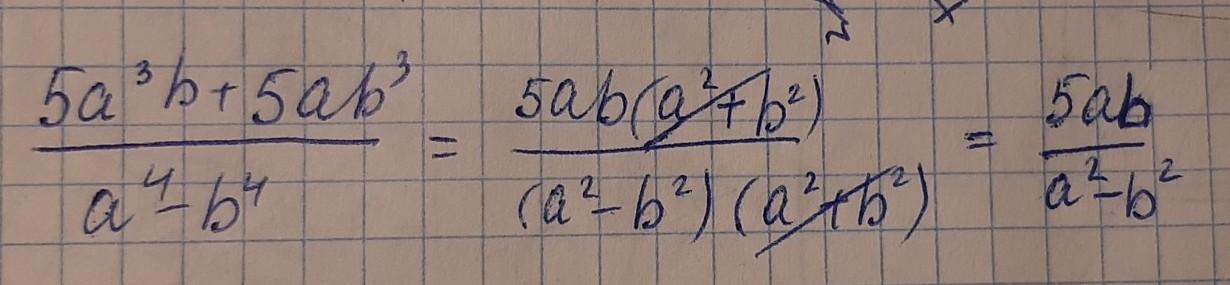 5a³b + 5ab³ / a⁴ - b⁴ = 5ab(a² + b²) / (a² - b²)(a² + b²) = 5ab / a² - b²